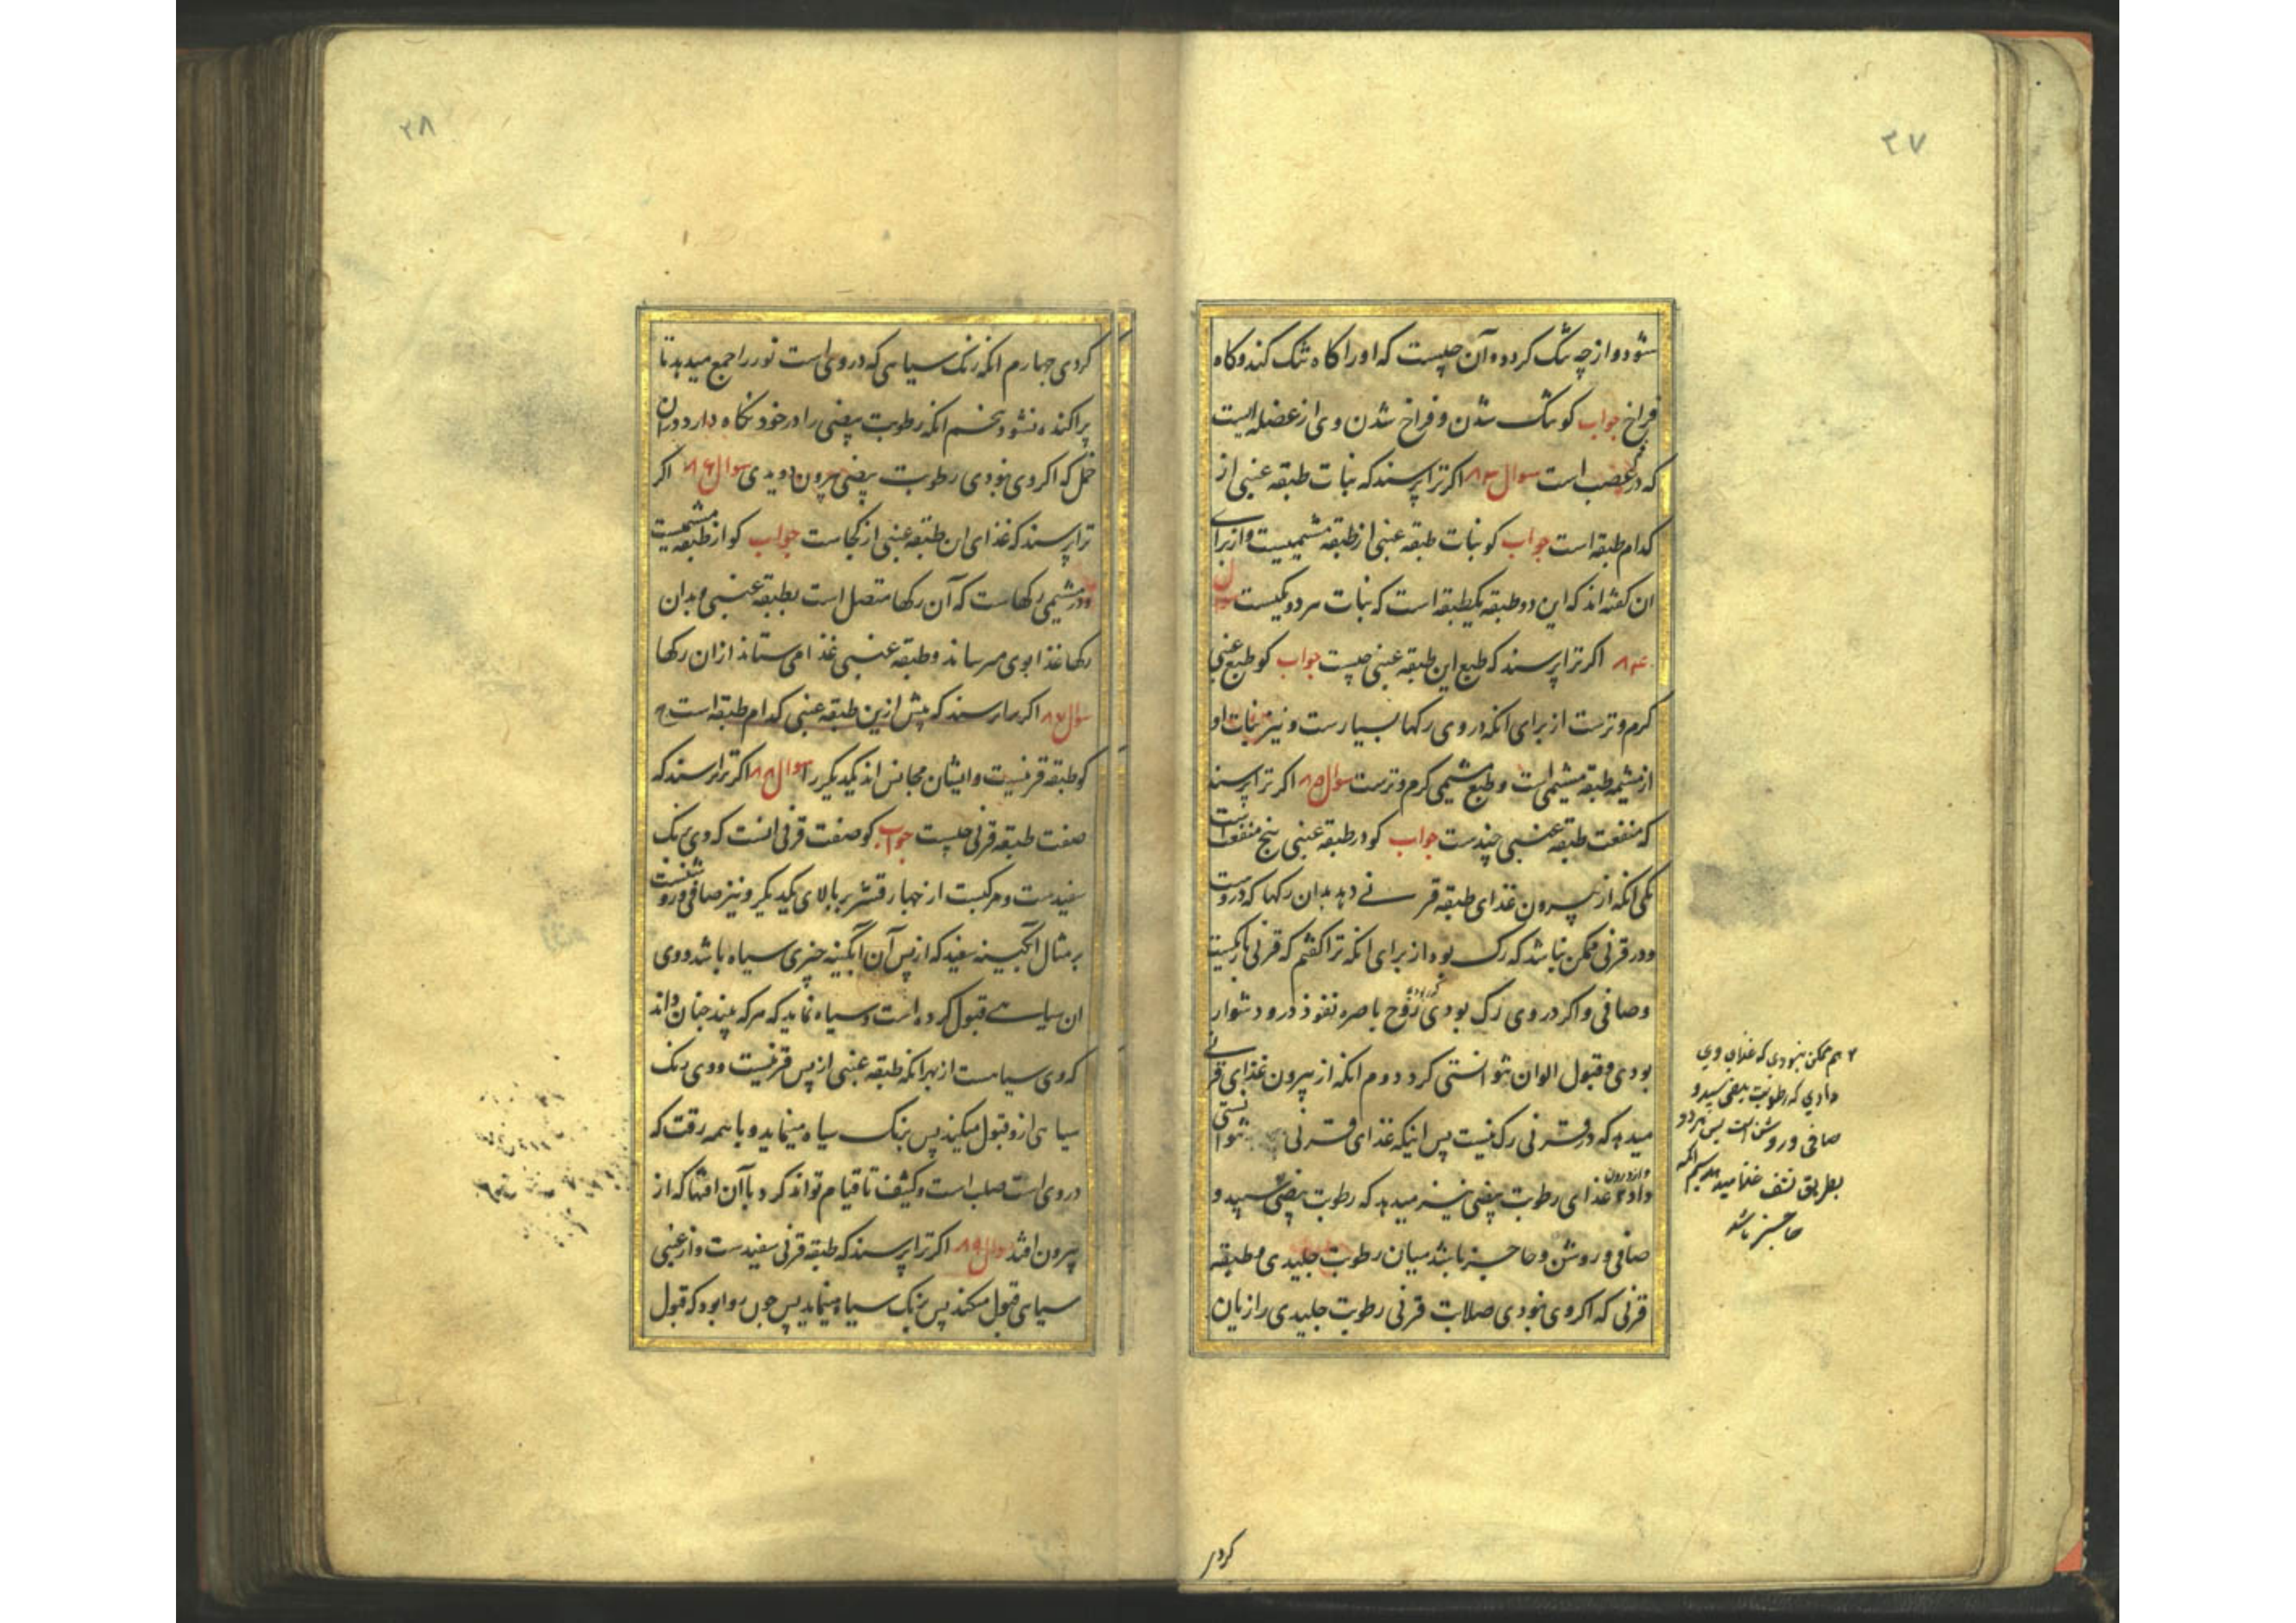 ۳۷
شود و از چه تنک کردد و آن چیست که او را کاه تنک کند و کاه
فراخ جواب کو تنک شدن و فراخ شدن وی از عضله ایست
که در عصب است سوال ۸۳ اکر ترا پرسند که نبات طبقه عنبی از
کدام طبقه است جواب کو نبات طبقه عنبی از طبقه مشیمیست و از برای
ان کفته اند که این دو طبقه یکطبقه است که نبات هر دو یکیست سوال
۸۴ اکر ترا پرسند که طبع این طبقه عنبی چیست جواب کو طبع عنبی
کرم و ترست از برای انکه در وی رکها بسیارست و نیز نبات او
از مشیمه طبقه مشیمی است و طبع مشیمی کرم و ترست سوال ۸۵ اکر ترا پرسند
که منفعت طبقه عنبی چندست جواب کو در طبقه عنبی پنج منفعت است
یکی انکه از بیرون غذای طبقه قرنی دهد بدان رکها که دروست
و در قرنی ممکن نباشد که رک بود از برای انکه ترا کفتم که قرنی باریکست
و صافی و اکر در وی رک بودی روح باصره نفوذ درو دشوار
بودی و قبول الوان نتوانستی کرد دوم انکه از بیرون غذای قرنی
میدهد که در قرنی رک نیست پس اینکه غذای قرنی توانستی
داد و از درون غذای رطوبت بیضی نیز میدهد که رطوبت بیضی سپید و
صافی و روشن و حاجز باشد میان رطوبت جلیدی و طبقه
قرنی که اکر وی نبودی صلابت قرنی رطوبت جلیدی را زیان
۲ هم ممکن نبودی که غذای وی
دادی که رطوبت بیضی سپید و
صافی و روشن است پس هر دو
بطریق نشف غذا میدهد سیم انکه
حاجز باشد
کردی
۳۸
کردی چهارم انکه رنک سیاهی که در وی است نور را جمع میدهد تا
پراکنده نشود پنجم انکه رطوبت بیضی را در خود نکاه دارد در ان
خمل که اکر وی نبودی رطوبت بیضی بیرون دویدی سوال ۸۶ اکر
ترا پرسند که غذای این طبقه عنبی از کجاست جواب کو از طبقه مشیمیست
و در مشیمی رکهاست که آن رکها متصل است بطبقه عنبی و بدان
رکها غذا بوی میرساند و طبقه عنبی غذا می ستاند از ان رکها
سوال ۸۷ اکر ترا پرسند که پیش ازین طبقه عنبی کدام طبقه است ج
کو طبقه قرنیست و ایشان مجانس اند یکدیکر را سوال ۸۸ اکر ترا پرسند که
صفت طبقه قرنی چیست جواب کو صفت قرنی انست که وی برنک
سفیدست و مرکبست از چهار قشر بر بالای یکدیکر و نیز صافی و روشنست
بر مثال آبکینه سفید که از پس آن آبکینه چیزی سیاه باشد و وی
ان سیاهی قبول کرده است و سیاه نماید که هر که بیند چنان داند
که وی سیاهست از بهر انکه طبقه عنبی از پس قرنیست و وی رنک
سیاهی ازو قبول میکند پس برنک سیاه مینماید و با همه رقت که
در وی است صلب است و کثیف تا قیام تواند کرد با آن افتها که از
بیرون افتد سوال ۸۹ اکر ترا پرسند که طبقه قرنی سفیدست و از عنبی
سیاهی قبول میکند پس برنک سیاه مینماید پس چون روا بود که قبول